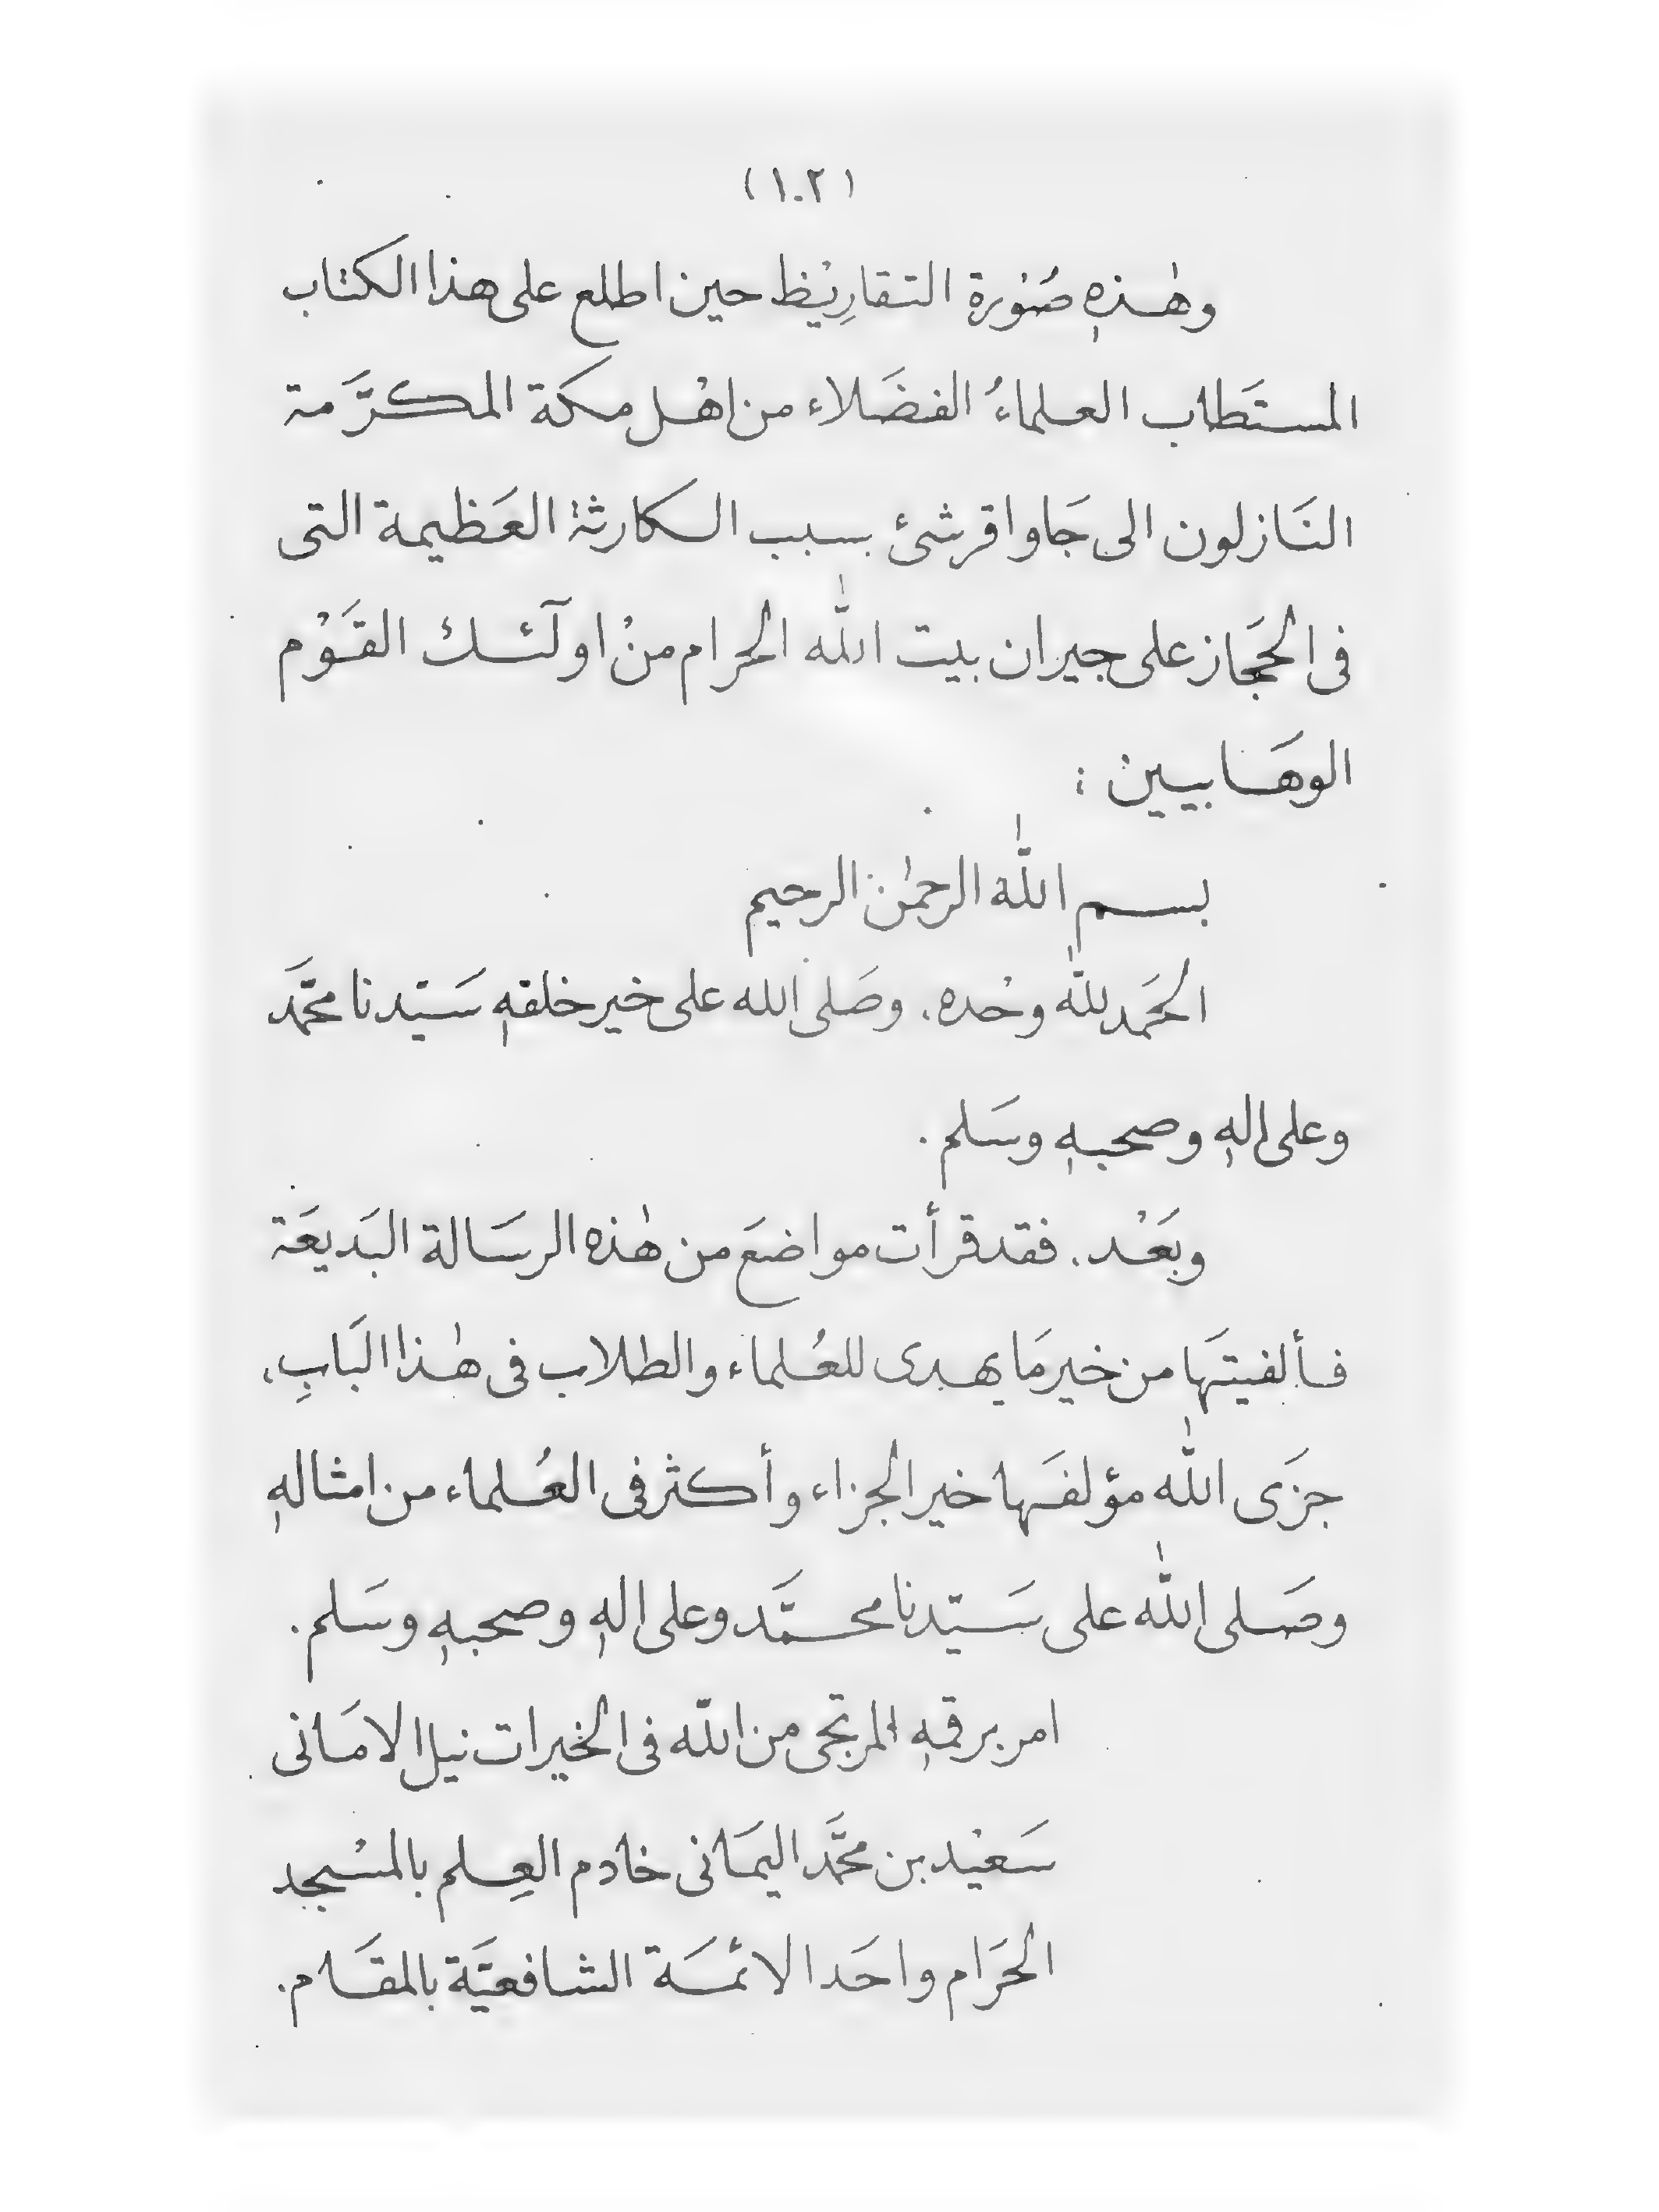 (١٠٢)
وهٰذهِ صُوْرة التقارِيْظ حين اطلع على هذا الكتاب
المستَطاب العلماءُ الفضَلاء من اهْل مكة المكرَّمة
النَازلون الى جَاوا قرشئ بسبب الكارثة العَظيمة التى
فى الحجَاز على جيران بيت اللّٰه الحرام منْ اولٓئك القَوْم
الوهَابيين :
بسم اللّٰه الرحمٰن الرحيم
الحمَد للّٰه وحْده، وصَلى الله على خير خلقهِ سَيّدنا محمَّد
وعلى الهِ وصحبهِ وسَلم .
وبعَْد . فقد قرأت مواضعَ من هٰذه الرسَالة البَديعَة
فألفيتَها من خير مَا يهدى للعُلماء والطلاب فى هٰذا البَابِ،
جزَى اللّٰه مؤلفَها خير الجزاء، وأكثر فى العُلماء من امثالهِ
وصَلى اللّٰه على سَيّدنا محمَّد وعلى الهِ وصحبهِ وسَلم .
امر برقمهِ المرتجى من اللّه فى الخيرات نيل الامَانى
سَعيْد بن محمَّد اليمَانى خادم العِلم بالمسْجد
الحرَام واحَد الائمَة الشافعيَّة بالمقَام .